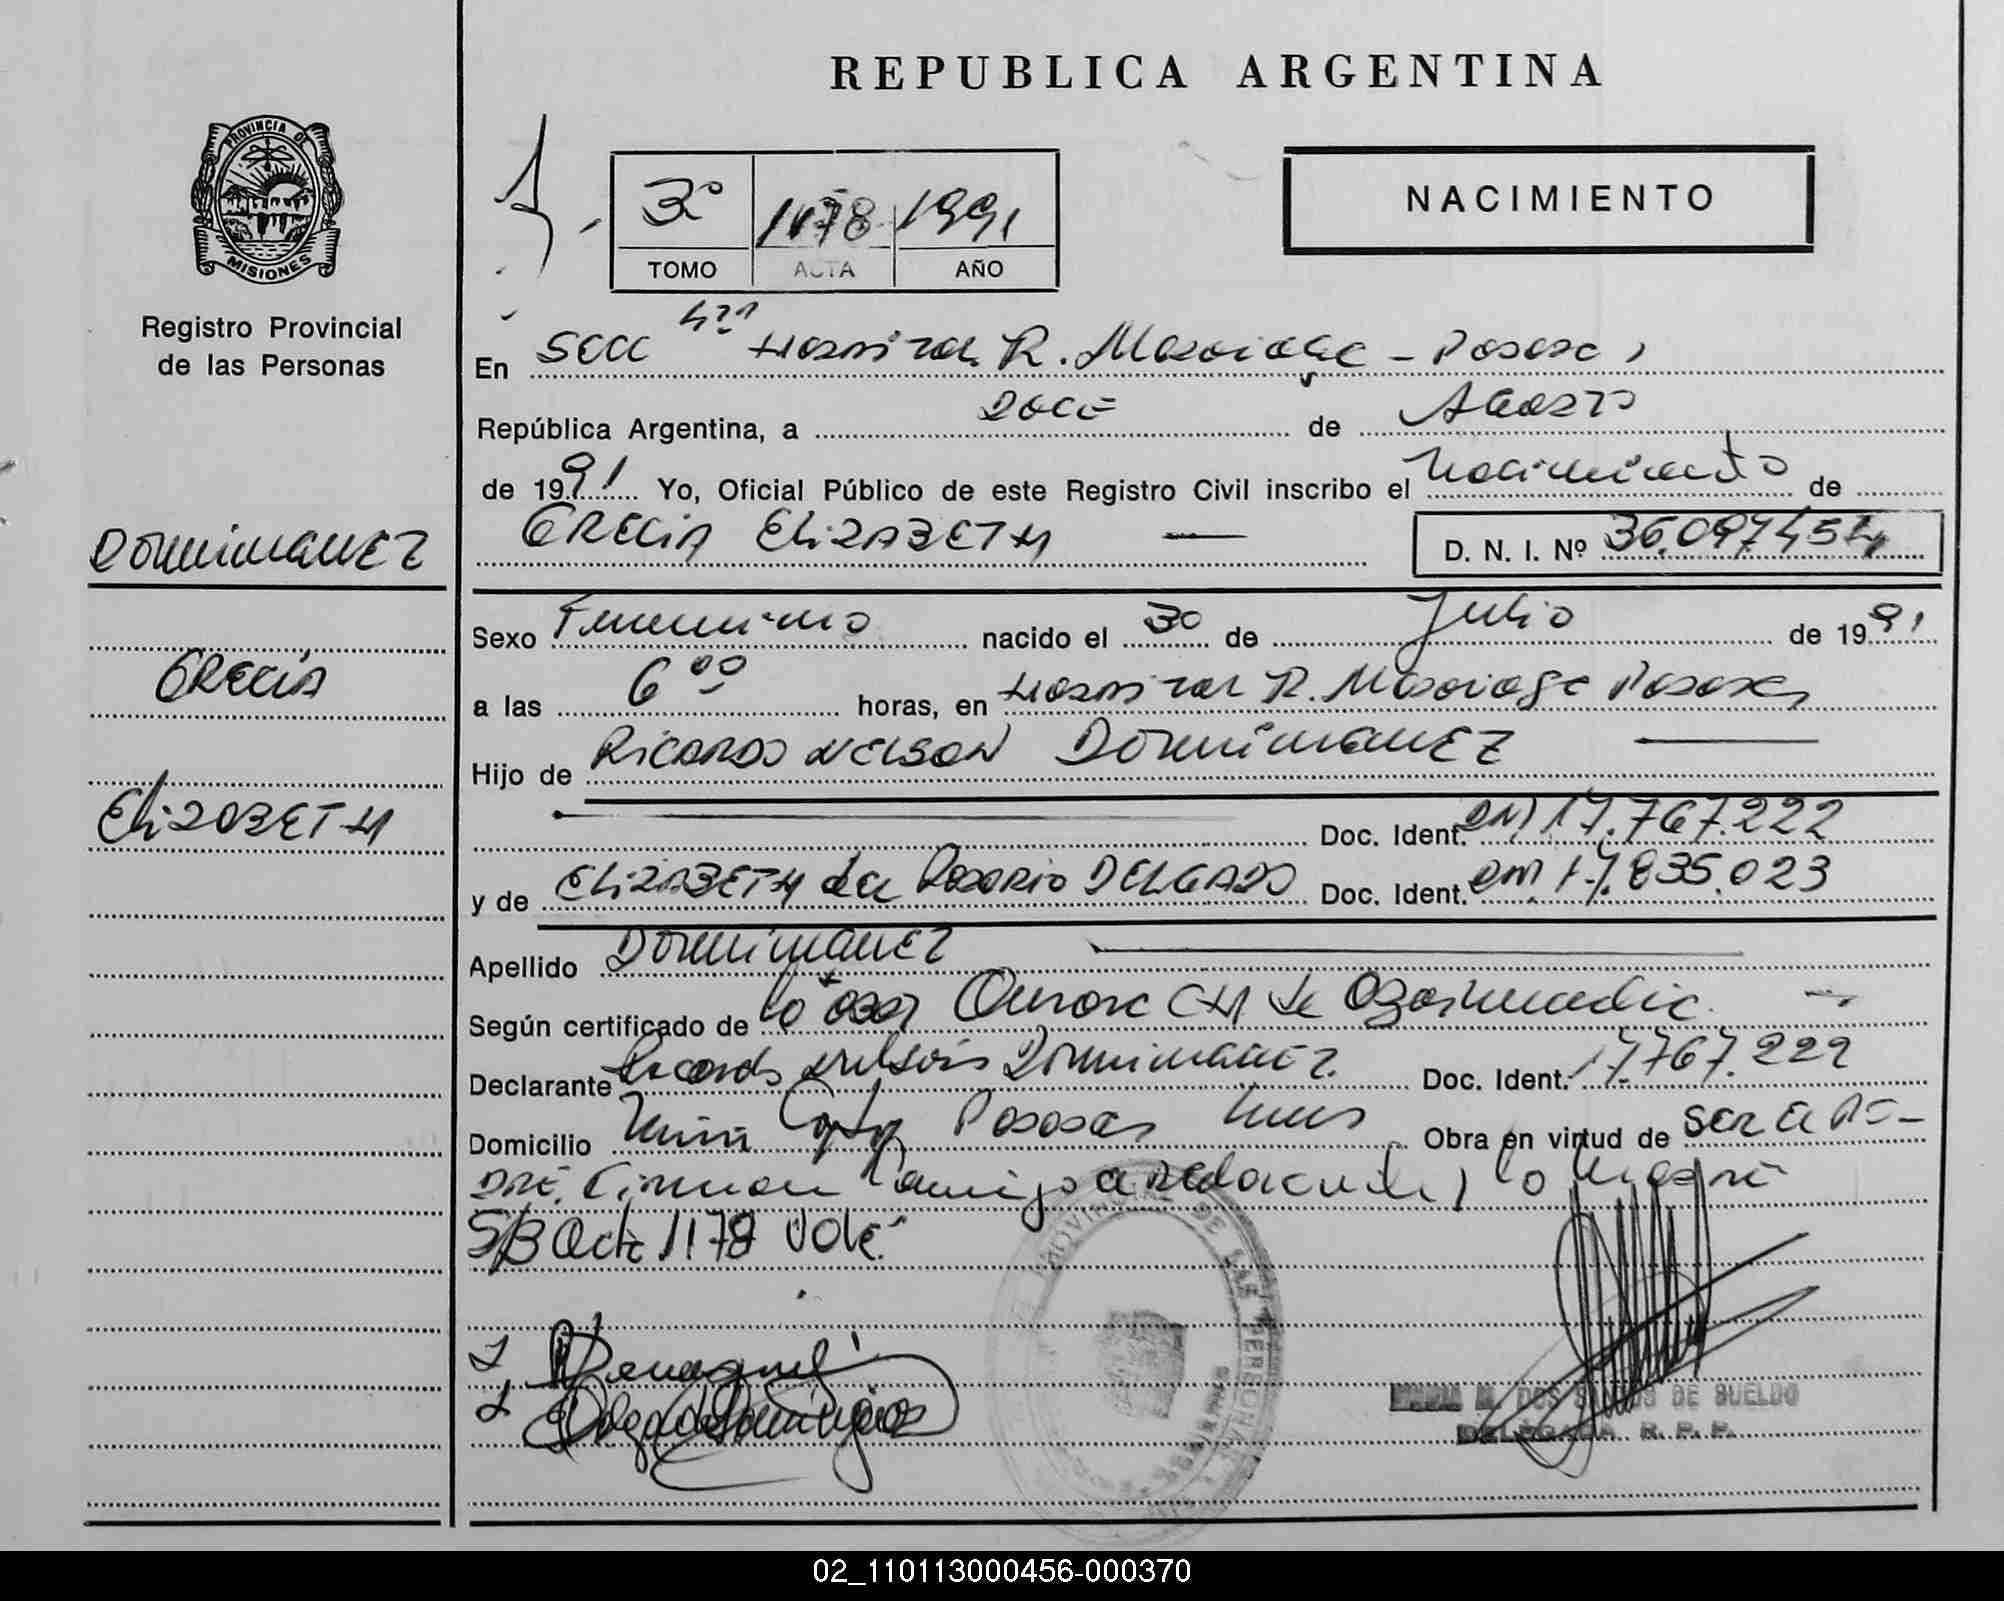 REPUBLICA ARGENTINA
PROVINCIA DE
MISIONES
Registro Provincial
de las Personas
3º 1178 1991
TOMO ACTA AÑO
NACIMIENTO
En Secc 4ta Hospital R. Madariaga - Posadas,
República Argentina, a doce de Agosto
de 1991 Yo, Oficial Público de este Registro Civil inscribo el nacimiento de
GRECIA ELIZABETH
D. N. I. Nº 36.097.454
DOMINGUEZ
GRECIA
ELIZABETH
Sexo Femenino nacido el 30 de Julio de 1991
a las 6 00 horas, en Hospital R. Madariaga Posadas
Hijo de RICARDO NELSON DOMINGUEZ
Doc. Ident. DNI 17.767.222
y de ELIZABETH del Rosario DELGADO Doc. Ident. DNI 17.835.023
Apellido DOMINGUEZ
Según certificado de la obst Aurora CH de
Declarante Ricardo Nelson DOMINGUEZ. Doc. Ident. 17.767.222
Domicilio Posadas Mnes Obra en virtud de ser el PA-
DRE. Firman conmigo el declarante y la madre
S/B Acta 1178 Vale.
PROVINCIAL DE LAS PERSONAS
MARIA M. DOS SANTOS DE SUELDO
DELEGADA R. P. P.
02_110113000456-000370